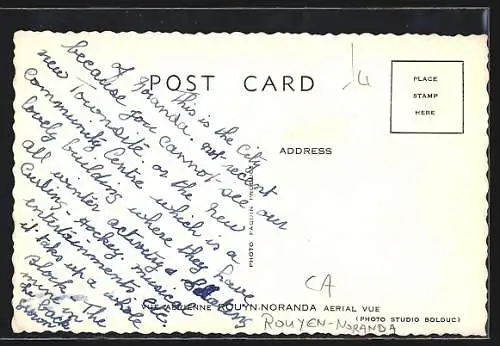 POST CARD
PLACE
STAMP
HERE
ADDRESS
This is the City
of Noranda. not recent
because you cannot see our
new Townsite or the new
Community Centre which is a
lovely building where they have
all winter activitys
Curling - Hockey. musical
entertainments etc.
it takes up a whole
Block on the
back
PHOTO
VUE AERIENNE ROUYN-NORANDA AERIAL VUE
(PHOTO STUDIO BOLDUC)
CA
ROUYEN-NORANDA